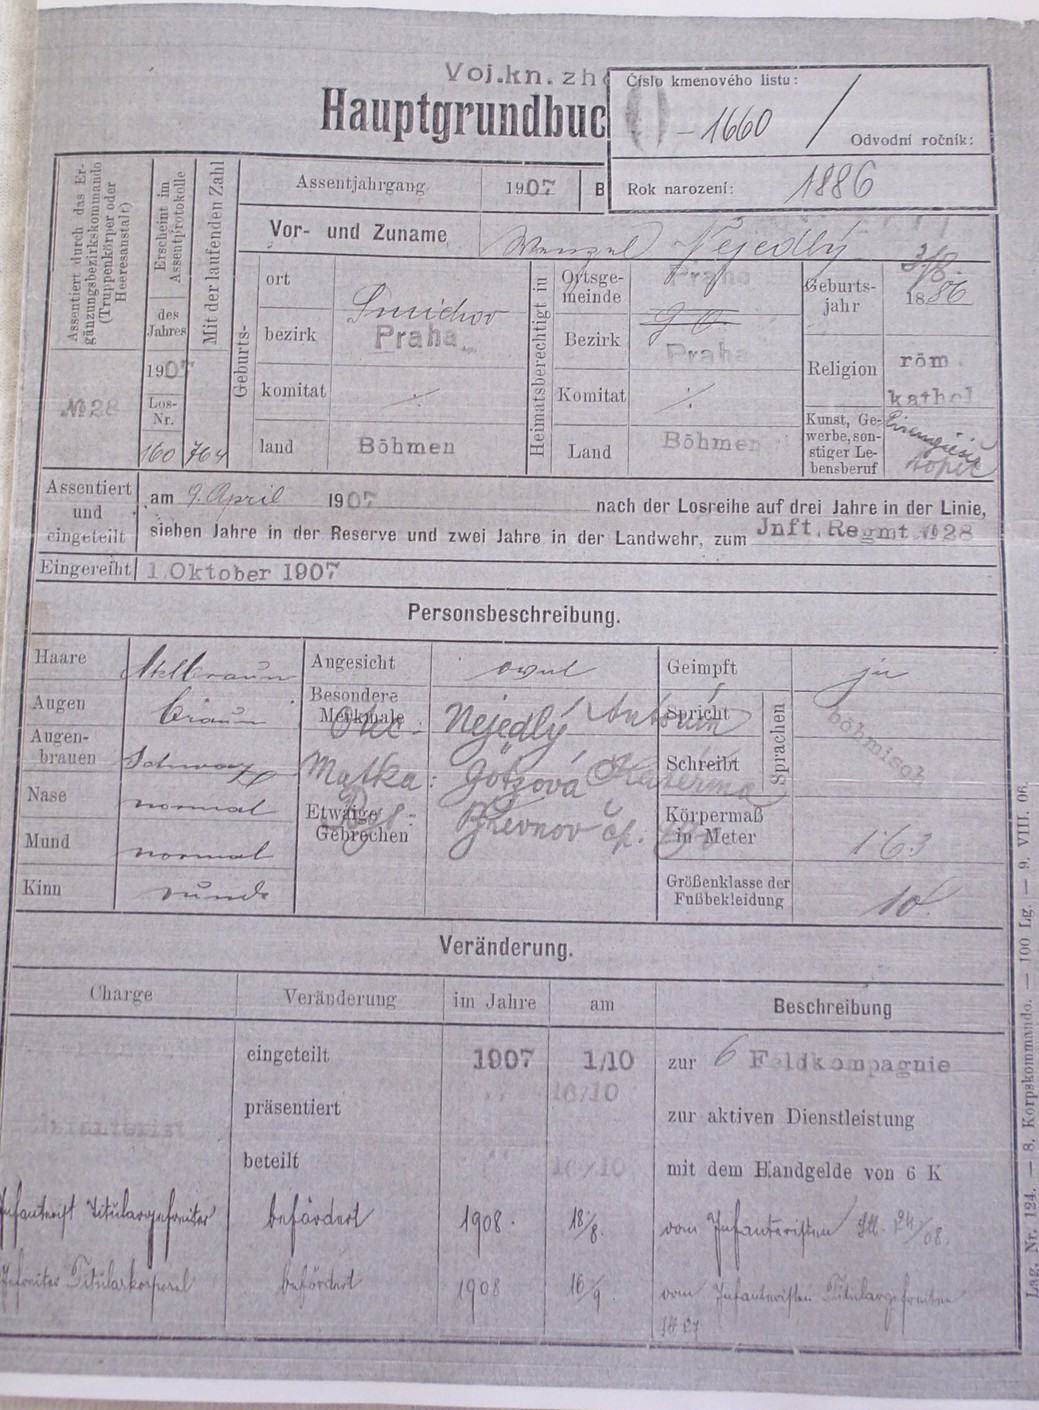 Voj.kn.
Hauptgrundbuc
Číslo kmenového listu:
1660
Odvodní ročník:
Rok narození: 1886
Assentiert durch das Er-
gänzungsbezirkskommando
(Truppenkörper oder
Heeresanstalt)
№ 28
Erscheint im
Assentprotokolle
des
Jahres
1907
Los-
Nr.
160
Mit der laufenden Zahl
764
Assentjahrgang 1907 B
Vor- und Zuname Wenzel Nejedlý
Geburts-
ort Smichov
bezirk Praha
komitat ./.
land Böhmen
Heimatsberechtigt in
Ortsge-
meinde Praha
Bezirk Praha
Komitat ./.
Land Böhmen
Geburts-
jahr 3/8. 1886
Religion röm.
kathol
Kunst, Ge-
werbe, son-
stiger Le-
bensberuf
Assentiert
und
eingeteilt
am 9. April 1907 nach der Losreihe auf drei Jahre in der Linie,
sieben Jahre in der Reserve und zwei Jahre in der Landwehr, zum Jnft. Regmt № 28
Eingereiht 1 Oktober 1907
Personsbeschreibung.
Haare
Augen braun
Augen-
brauen Schwarz
Nase normal
Mund normal
Kinn runde
Angesicht oval
Besondere
Merkmale
Otec: Nejedlý Antonín
Matka: Götzová Kateřina
Etwaige
Gebrechen
Břevnov čp.
Geimpft ja
Spricht
Schreibt
Sprachen
böhmisch
Körpermaß
in Meter 1·63
Größenklasse der
Fußbekleidung 10
Veränderung.
Charge Veränderung im Jahre am Beschreibung
eingeteilt 1907 1/10 zur 6 Feldkompagnie
Infanterist präsentiert " 16/10 zur aktiven Dienstleistung
beteilt " 16/10 mit dem Handgelde von 6 K
Infanterist Titulargefreiter befördert 1908. 18/8. vom Infanteristen 24/08.
Titularkorporal befördert 1908 16/9 vom Infanteristen Titulargefreiten
Lag. Nr. 124. — 8. Korpskommando. — 100 Lg. — 9. VIII. 06.